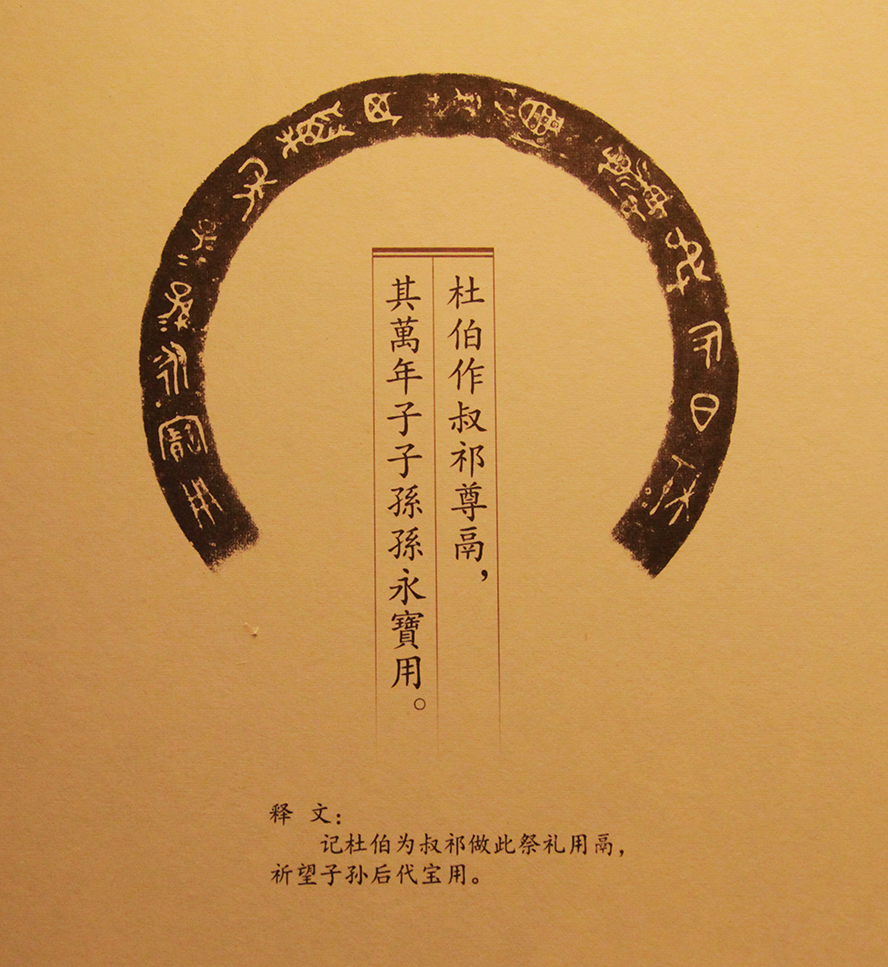 杜伯作叔祁尊鬲，
其萬年子子孫孫永寶用。
释 文：
记杜伯为叔祁做此祭礼用鬲，
祈望子孙后代宝用。